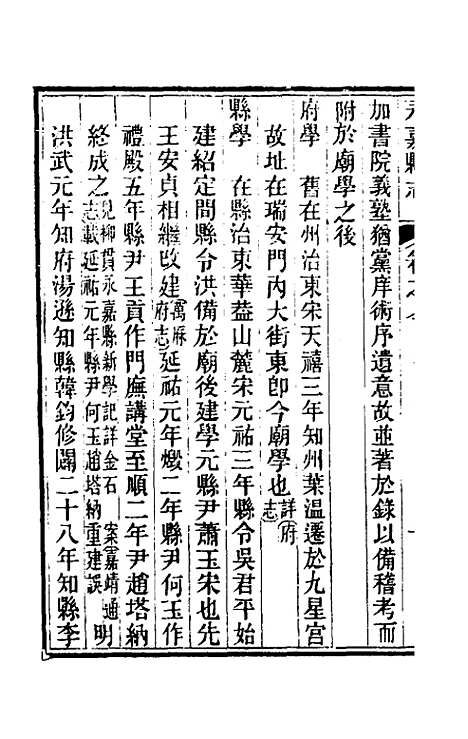 永嘉縣志 卷之七
加書院義塾猶黨庠術序遺意故並著於錄以備稽考而
附於廟學之後
府學 舊在州治東宋天禧三年知州葉温遷於九星宮
故址在瑞安門內大街東卽今廟學也詳府志
縣學 在縣治東華葢山麓宋元祐三年縣令吳君平始
建紹定間縣令洪備於廟後建學元縣尹蕭玉宋也先
王安貞相繼改建萬厤府志延祐元年燬二年縣尹何玉作
禮殿五年縣尹王貢作門廡講堂至順二年尹趙塔納
終成之見柳貫永嘉縣新學記詳金石 案嘉靖通志載延祐元年縣尹何玉趙塔納重建誤明
洪武元年知府湯遜知縣韓鈞修闢二十八年知縣李